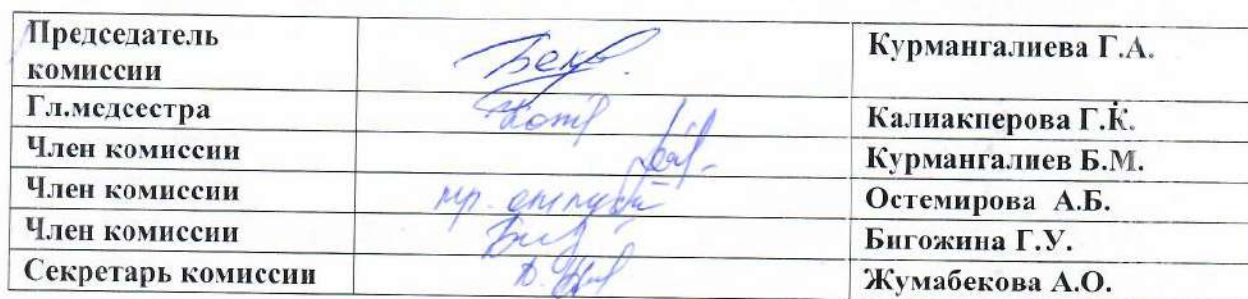 Председатель
комиссии
Курмангалиева Г.А.
Гл.медсестра
Калиакперова Г.К.
Член комиссии
Курмангалиев Б.М.
Член комиссии
Остемирова А.Б.
Член комиссии
Бигожина Г.У.
Секретарь комиссии
Жумабекова А.О.